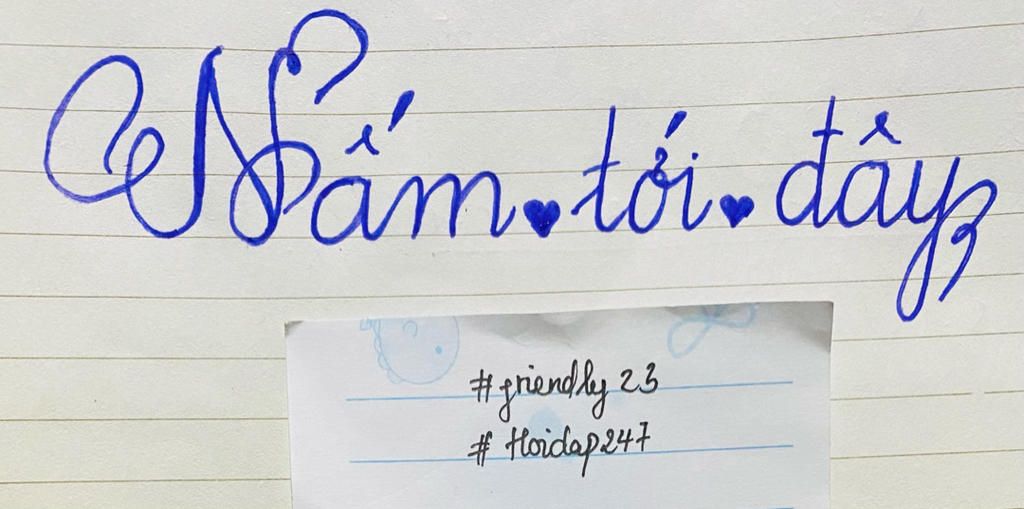 Nấm tới đây
#friendly23
#Hoidap247